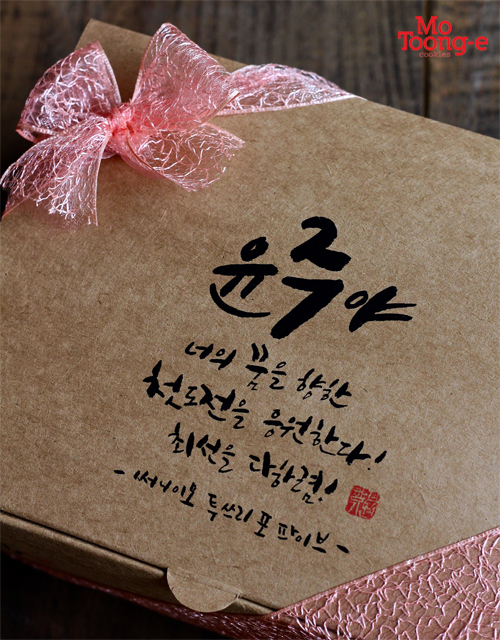 Mo
Toong-e
cookies
윤주야
너의 꿈을 향한
첫도전을 응원한다!
최선을 다하렴!
- 써니이모 투쓰리 포 파이브 -